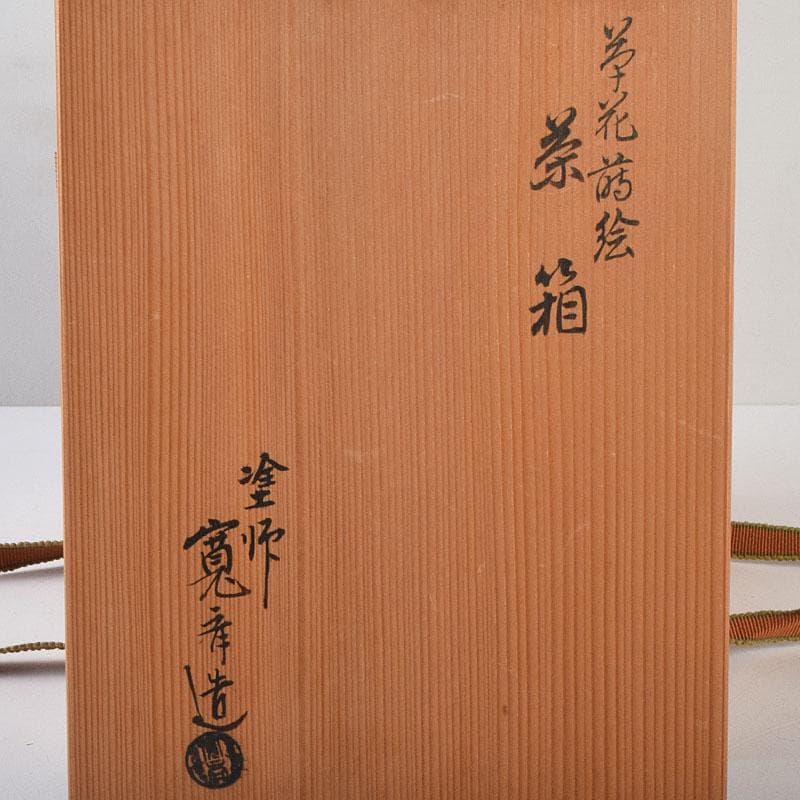 草花蒔絵
茶箱
塗師
寛斉造